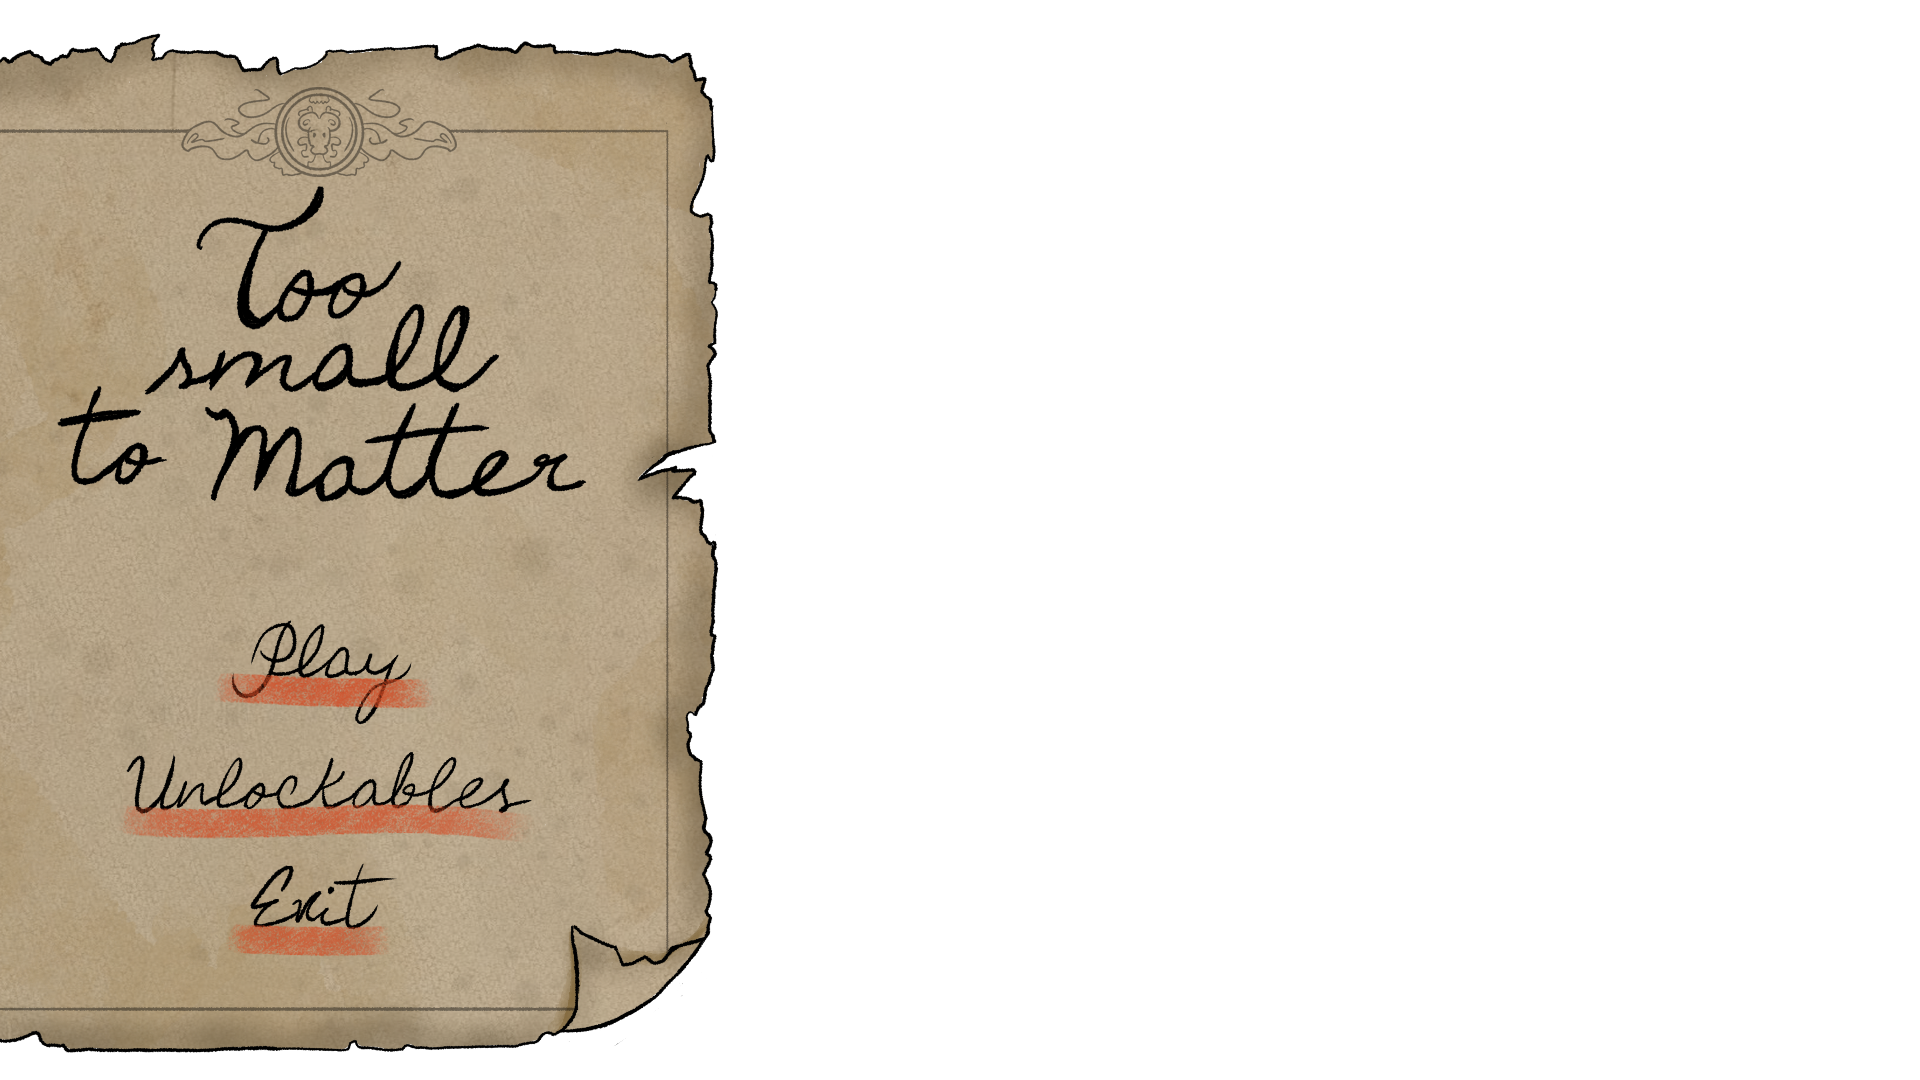 Too
small
to Matter
Play
Unlockables
Exit